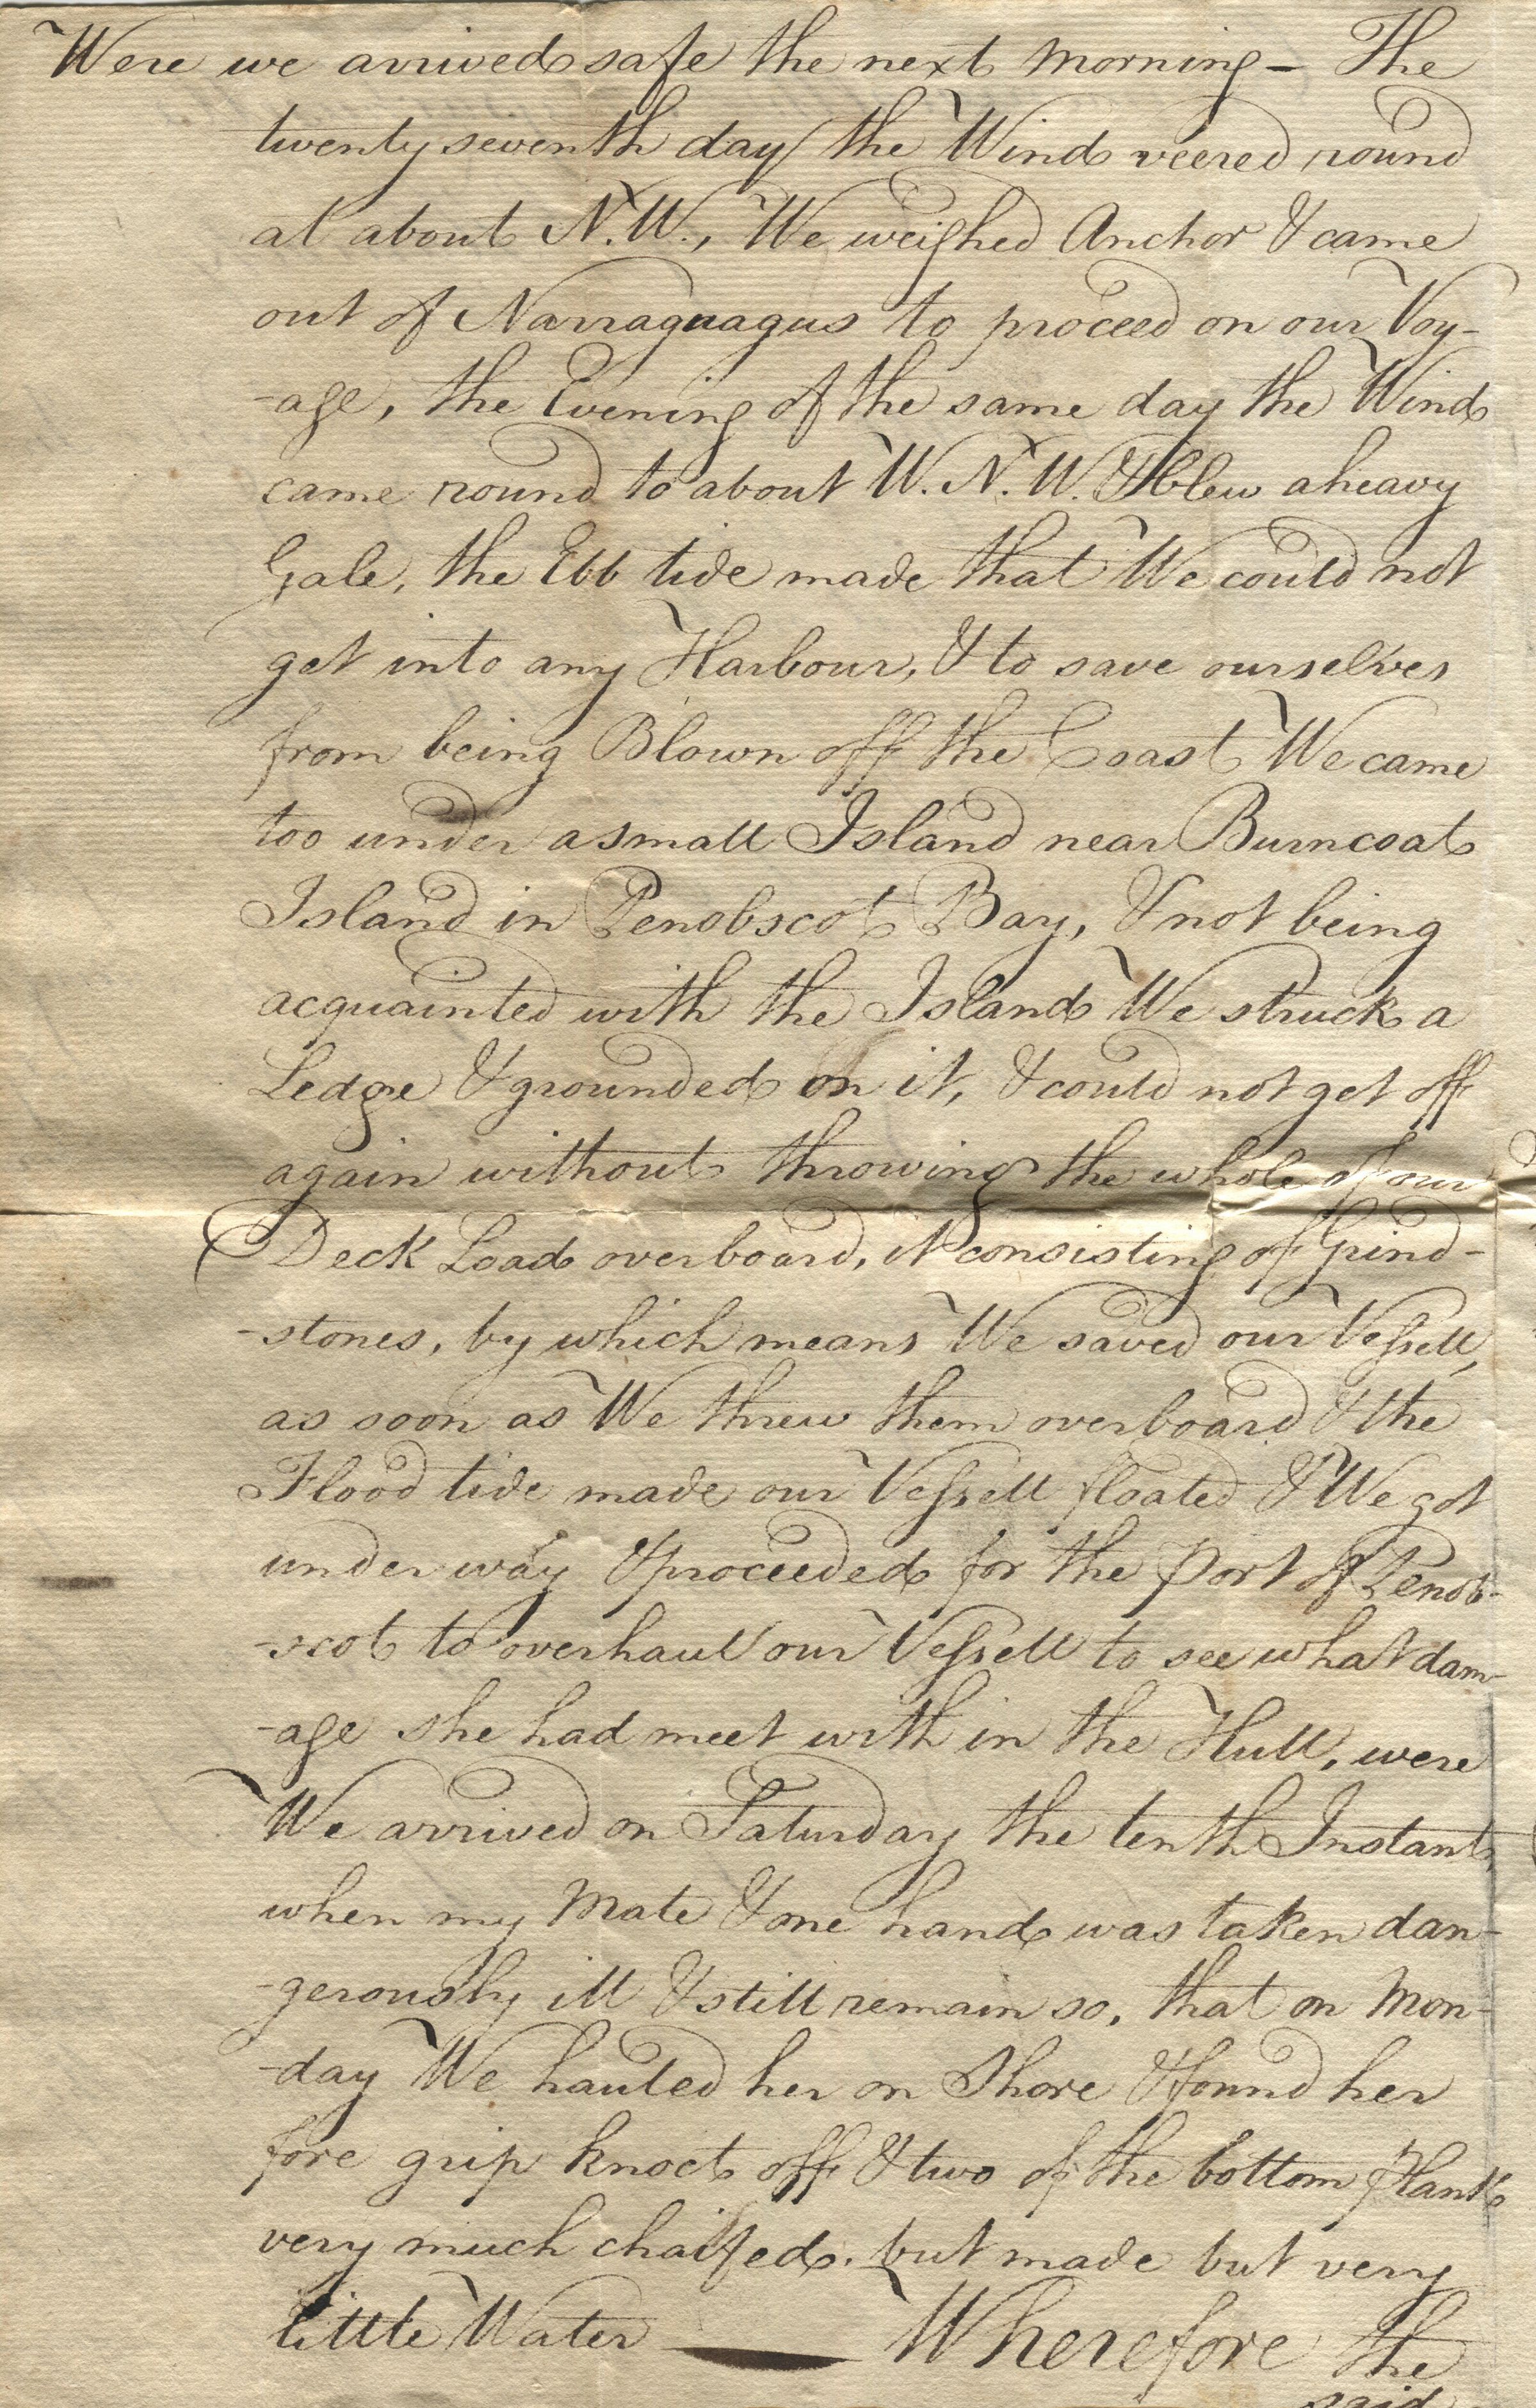 Were we arrived safe the next morning – The
twenty seventh day the Wind veered round
at about N.W., We weighed Anchor & came
out of Narraguagus to proceed on our Voy-
-age, the Evening of the same day the Wind
came round to about W. N. W. & blew a heavy
Gale, the Ebb tide made that We could not
get into any Harbour, & to save ourselves
from being Blown off the Coast We came
too under a small Island near Burncoat
Island in Penobscot Bay, & not being
acquainted with the Island We struck a
Ledge & grounded on it, & could not get off
again without throwing the whole of our
Deck Load overboard, it consisting of Grind-
-stones, by which means We saved our Vessell,
as soon as We threw them overboard & the
Flood tide made our Vessell floated & We got
under way & proceeded for the Port of Penob-
-scot to overhaul our Vessell to see what dam-
-age she had meet with in the Hull, were
We arrived on Saturday the tenth Instant,
when my Mate & one hand was taken dan-
-gerously ill & still remain so, that on Mon-
-day We hauled her on Shore & found her
fore grip knoct off & two of the bottom plank
very much chaffed. but made but very
little Water — Wherefore the
said